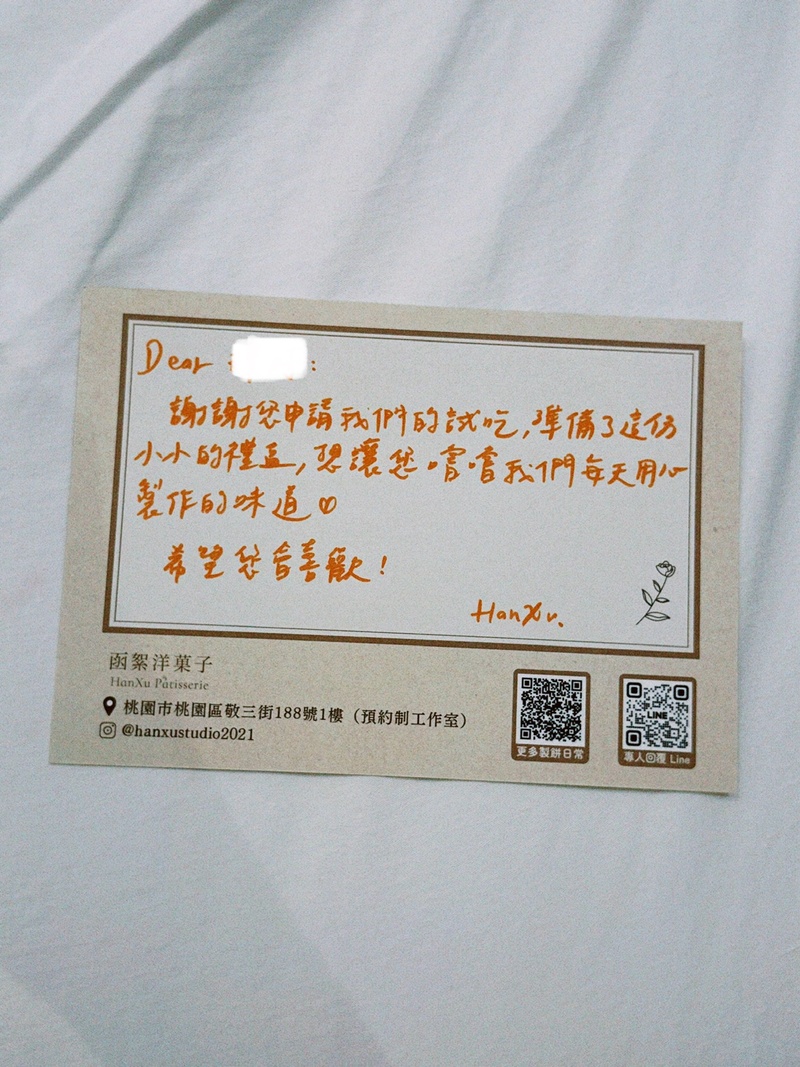 Dear :
謝謝您申請我們的試吃,準備了這份
小小的禮盒,想讓您嚐嚐我們每天用心
製作的味道♡
希望您會喜歡!
HanXu.
函絮洋菓子
HanXu Pâtisserie
桃園市桃園區敬三街188號1樓（預約制工作室）
@hanxustudio2021
更多製餅日常
LINE
專人回覆 Line